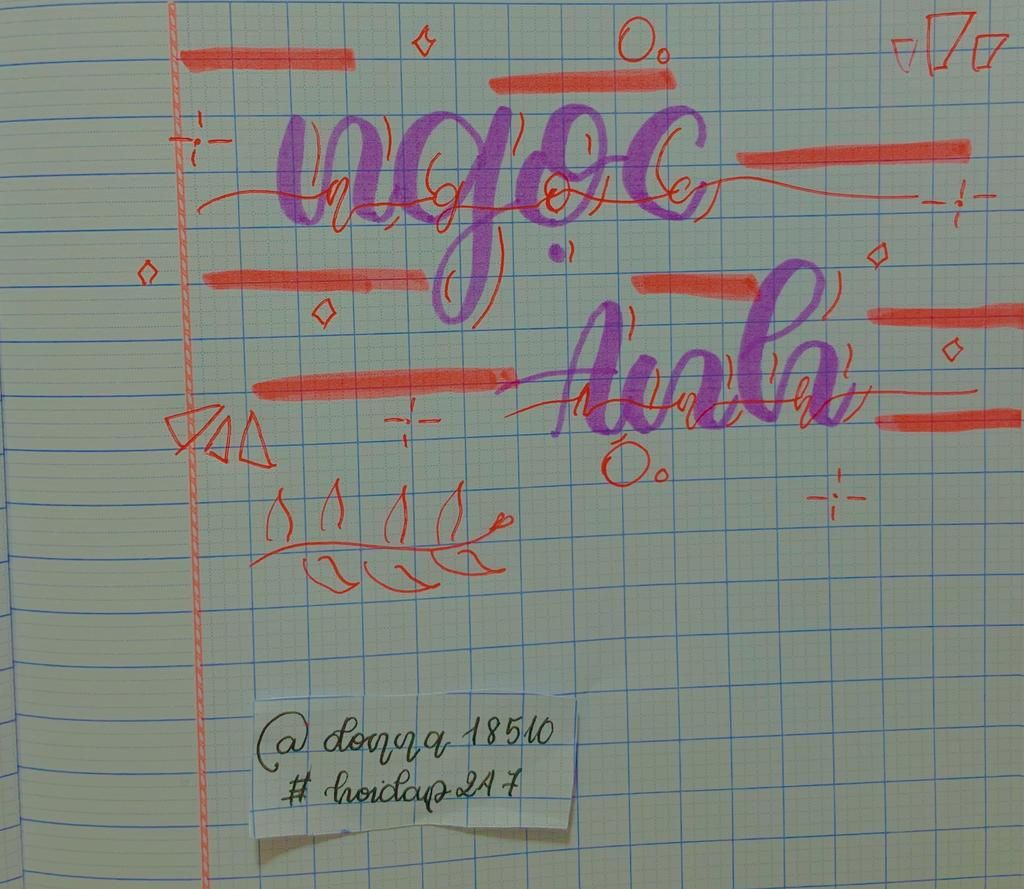 ngọc
Anh
@ donna 18510
# hoidap247